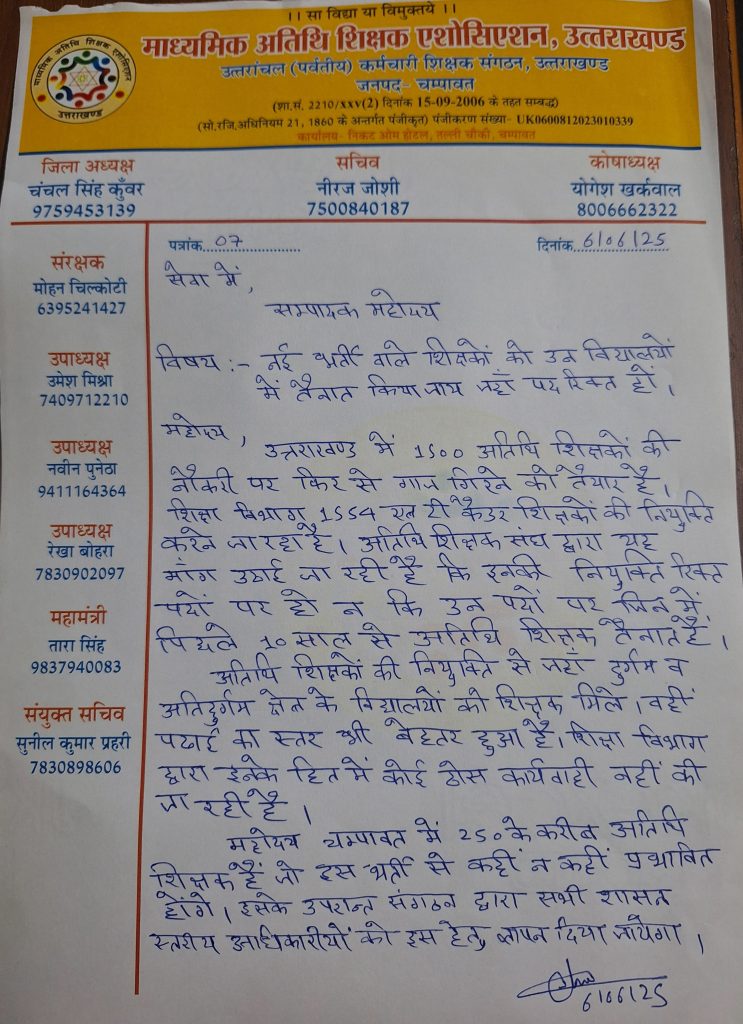 ।। सा विद्या या विमुक्तये ।।
माध्यमिक अतिथि शिक्षक एशोसिएशन, उत्तराखण्ड
उत्तरांचल (पर्वतीय) कर्मचारी शिक्षक संगठन, उत्तराखण्ड
जनपद- चम्पावत
(शा.सं. 2210/xxv(2) दिनांक 15-09-2006 के तहत सम्बद्ध)
(सो.रजि.अधिनियम 21, 1860 के अन्तर्गत पंजीकृत) पंजीकरण संख्या- UK0600812023010339
कार्यालय- निकट ओम होटल, तल्ली चौकी, चम्पावत
माध्यमिक अतिथि शिक्षक एशोसिएशन
उत्तराखण्ड
जिला अध्यक्ष
चंचल सिंह कुँवर
9759453139
सचिव
नीरज जोशी
7500840187
कोषाध्यक्ष
योगेश खर्कवाल
8006662322
संरक्षक
मोहन चिल्कोटी
6395241427
उपाध्यक्ष
उमेश मिश्रा
7409712210
उपाध्यक्ष
नवीन पुनेठा
9411164364
उपाध्यक्ष
रेखा बोहरा
7830902097
महामंत्री
तारा सिंह
9837940083
संयुक्त सचिव
सुनील कुमार प्रहरी
7830898606
पत्रांक 07 दिनांक 6/06/25
सेवा में,
सम्पादक महोदय
विषय :- नई भर्ती वाले शिक्षकों को उन विद्यालयों
में तैनात किया जाय जहाँ पद रिक्त हों।
महोदय, उत्तराखण्ड में 1500 अतिथि शिक्षकों की
नौकरी पर फिर से गाज गिरने को तैयार है।
शिक्षा विभाग 1554 एल टी कैडर शिक्षकों की नियुक्ति
करने जा रहा है। अतिथि शिक्षक संघ द्वारा यह
माँग उठाई जा रही है कि इनकी नियुक्ति रिक्त
पदों पर हो न कि उन पदों पर जिन में
पिछले 10 साल से अतिथि शिक्षक तैनात हैं।
अतिथि शिक्षकों की नियुक्ति से जहाँ दुर्गम व
अतिदुर्गम क्षेत्र के विद्यालयों को शिक्षक मिले। वहीं
पढाई का स्तर भी बेहतर हुआ है। शिक्षा विभाग
द्वारा इनके हित में कोई ठोस कार्यवाही नहीं की
जा रही है।
महोदय चम्पावत में 250 के करीब अतिथि
शिक्षक हैं जो इस भर्ती से कहीं न कहीं प्रभावित
होंगे। इसके उपरान्त संगठन द्वारा सभी शासन
स्तरीय अधिकारीयों को इस हेतु ज्ञापन दिया जायेगा।
6/06/25